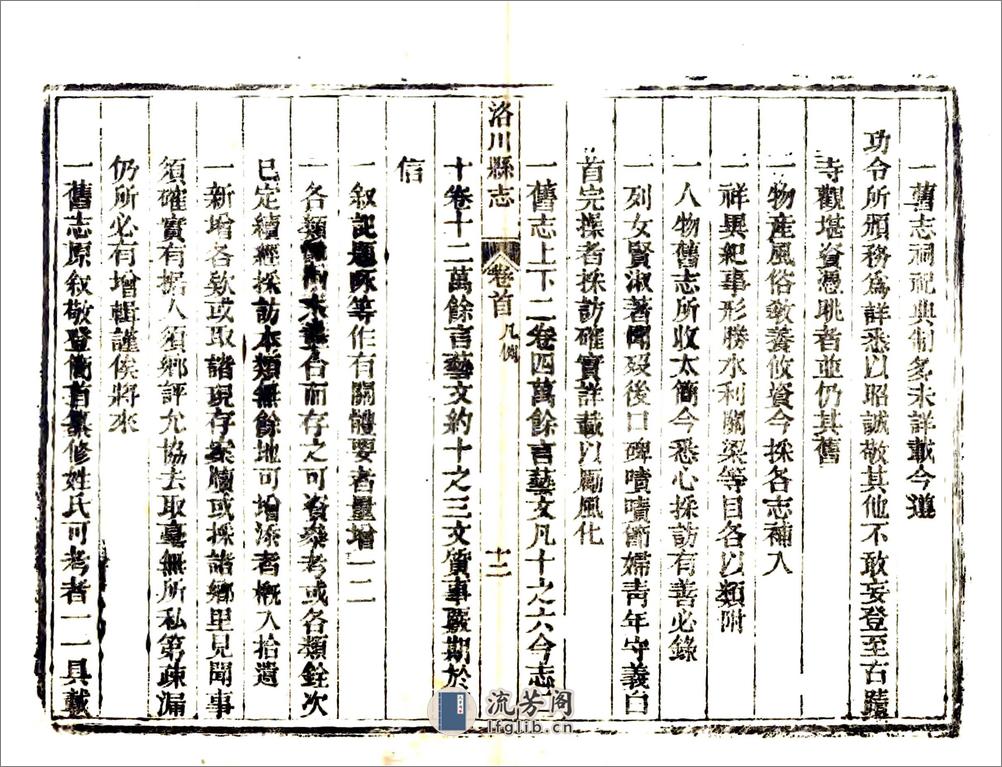 一舊志祠祀典制多未詳載今遵
功令所頒務爲詳悉以昭誠敬其他不敢妄登至古蹟
寺觀堪資憑眺者並仍其舊
一物産風俗敎養攸資今採各志補入
一祥異紀事形勝水利關梁等目各以類附
一人物舊志所收太簡今悉心採訪有善必錄
一列女賢淑著聞歿後口碑嘖嘖衢嫠婦靑年守義白
首完操者採訪確實詳載以勵風化
一舊志上下二卷四萬餘言藝文凡十之六今志
洛川縣志
卷首 凡例
十二
十卷十二萬餘言藝文約十之三文質事覈期於
信
一叙記題咏等作有關體要者量增一二
一各類 合而存之可資參考或各類銓次
已定續經採訪本類無餘地可增添者槪入拾遺
一新增各欵或取諸現存案牘或採諸鄉里見聞事
須確實有據人須鄉評允協去取毫無所私第疎漏
仍所必有增輯謹俟將來
一舊志原叙敬登簡首纂修姓氏可考者一一具載
流芳阁
lfglib.cn